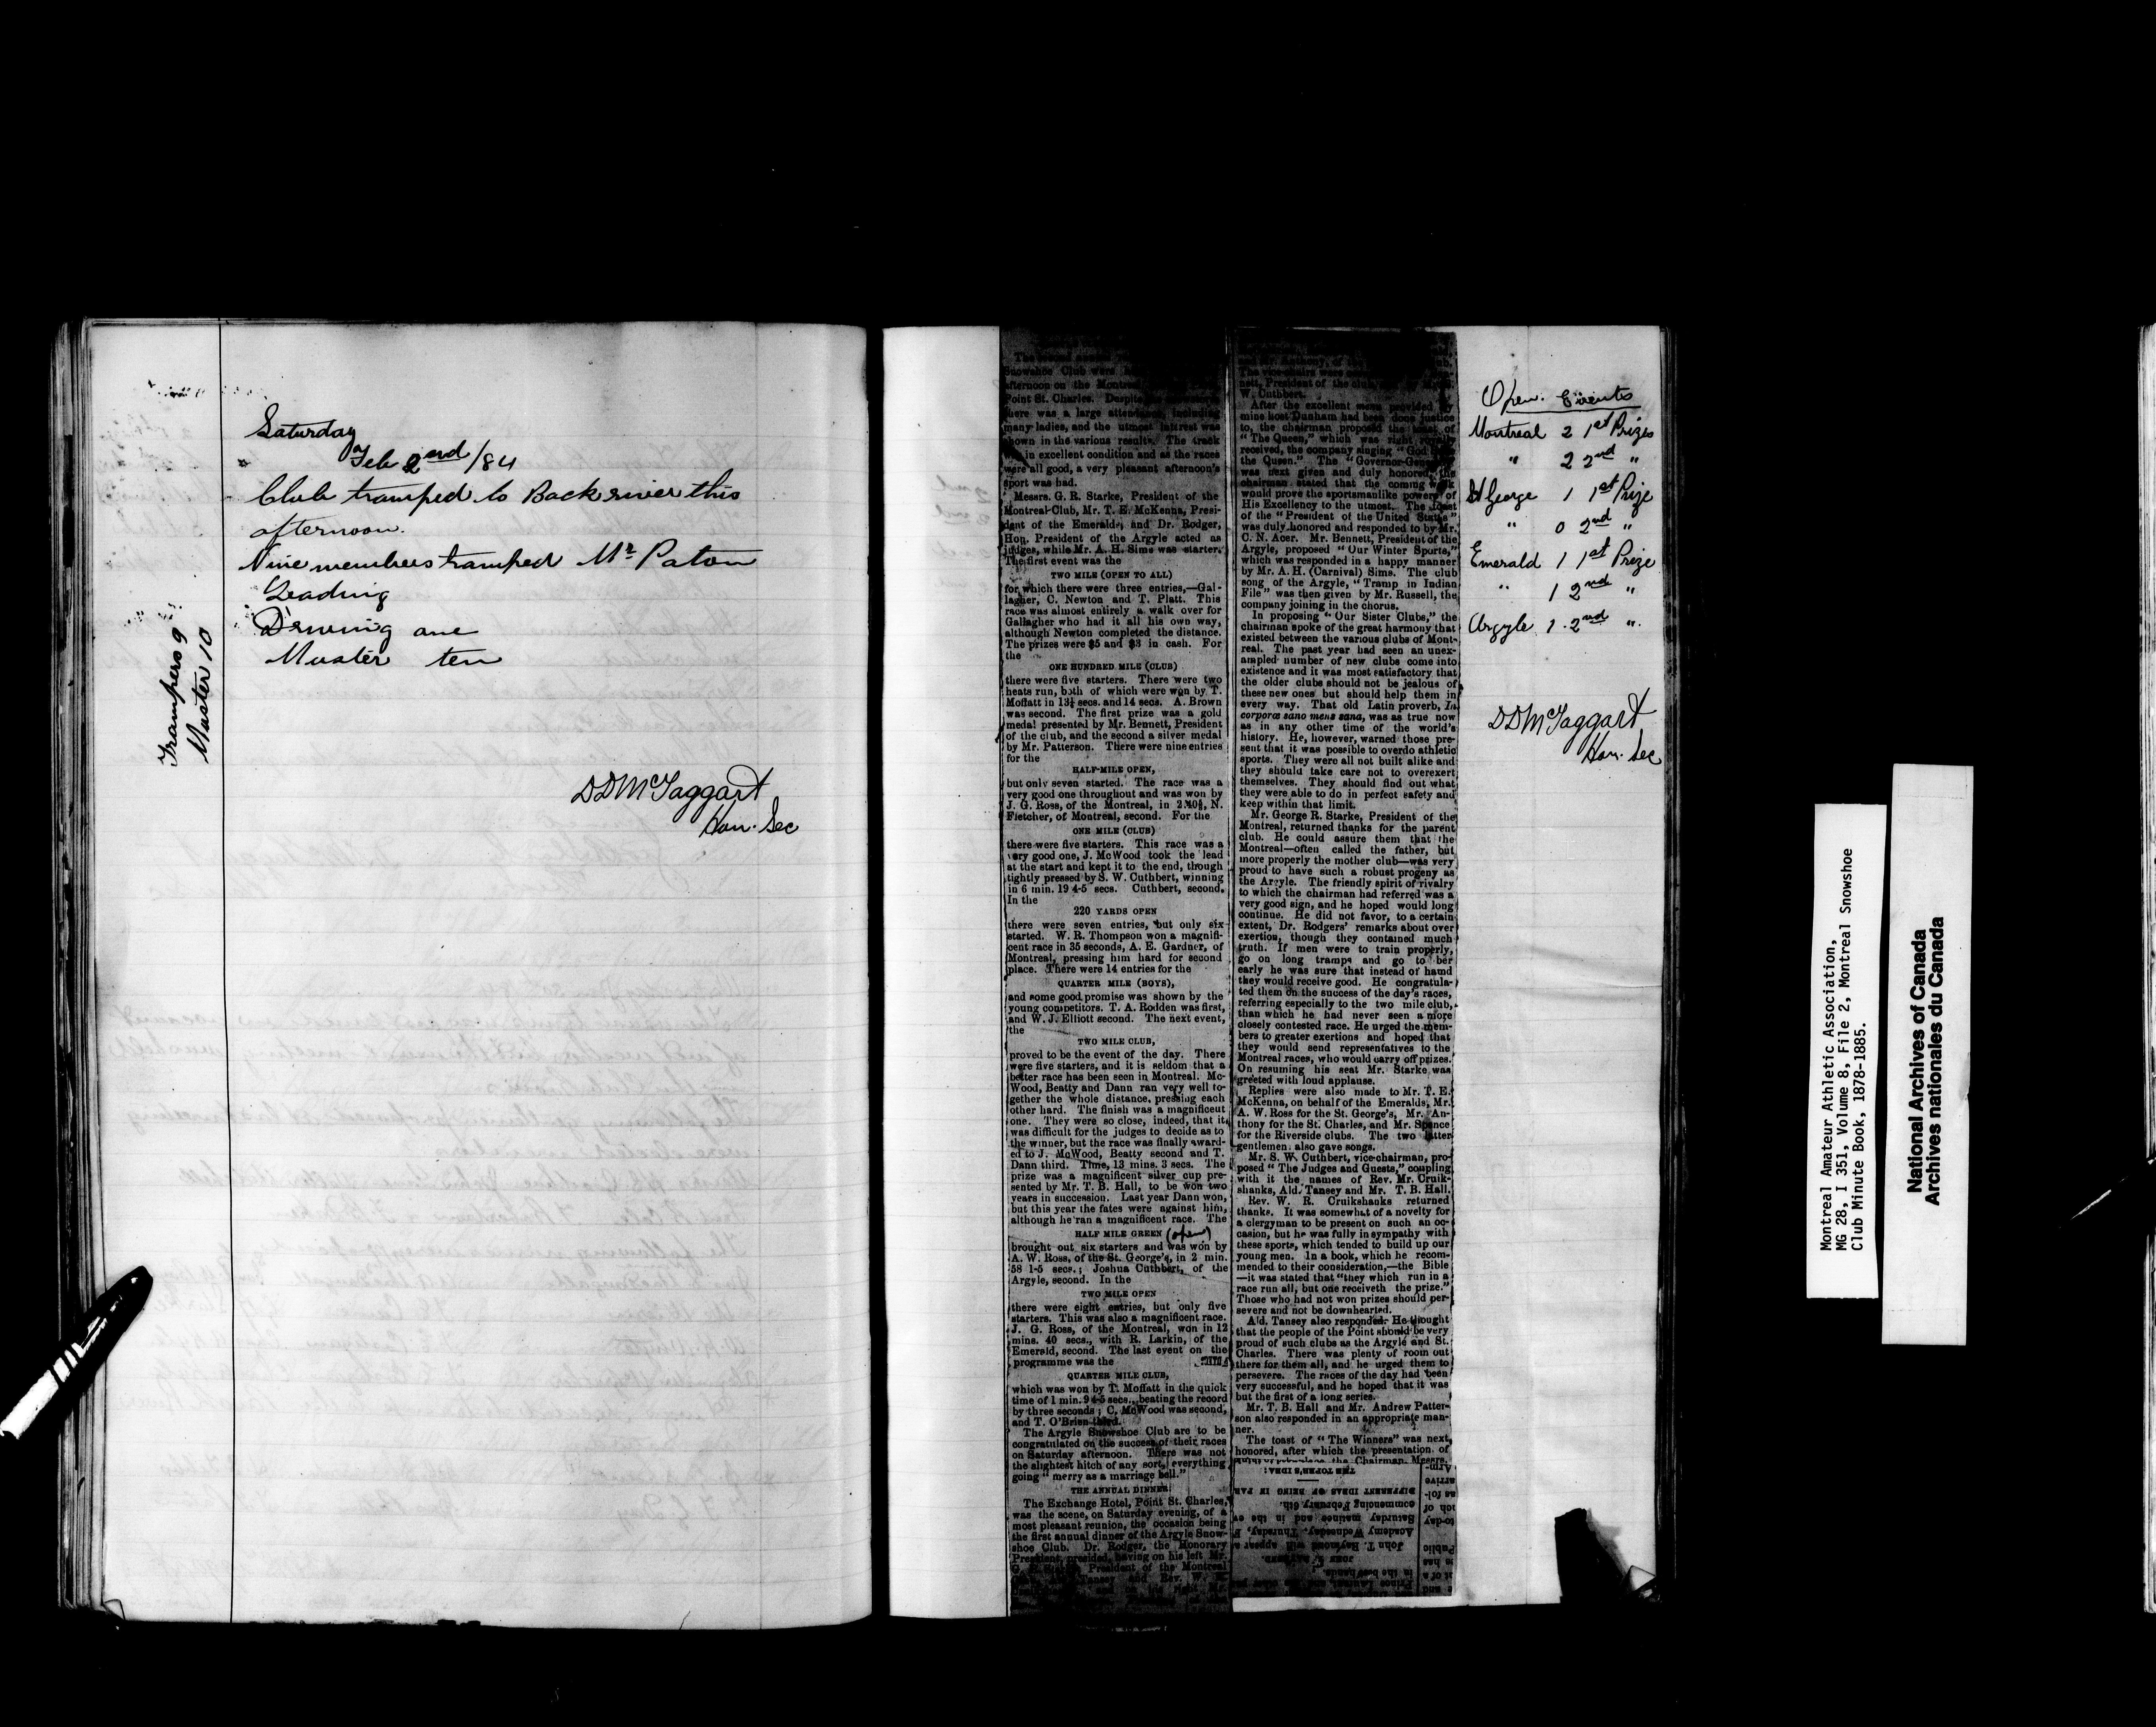 Saturday
Feb 2nd /84
Club tramped to Back river this
afternoon.
Nine members tramped Mr Paton
Leading
Driving one
Muster ten
Trampers 9
Muster 10
DDMcTaggart
Hon. Sec
Snowshoe Club were
afternoon on the Montreal
Point St. Charles. Despite
there was a large attendance, including
many ladies, and the utmost interest was
shown in the various results. The track
in excellent condition and as the races
were all good, a very pleasant afternoon's
sport was had.
Messrs. G. R. Starke, President of the
Montreal Club, Mr. T. E. McKenna, Presi-
dent of the Emerald, and Dr. Rodger,
Hon. President of the Argyle acted as
judges, while Mr. A. H. Sims was starter.
The first event was the
TWO MILE (OPEN TO ALL)
for which there were three entries,—Gal-
lagher, C. Newton and T. Platt. This
race was almost entirely a walk over for
Gallagher who had it all his own way,
although Newton completed the distance.
The prizes were $5 and $3 in cash. For
the
ONE HUNDRED MILE (CLUB)
there were five starters. There were two
heats run, both of which were won by T.
Moffatt in 13¼ secs. and 14 secs. A. Brown
was second. The first prize was a gold
medal presented by Mr. Bennett, President
of the club, and the second a silver medal
by Mr. Patterson. There were nine entries
for the
HALF-MILE OPEN,
but only seven started. The race was a
very good one throughout and was won by
J. G. Ross, of the Montreal, in N.
Fletcher, of Montreal, second. For the
ONE MILE (CLUB)
there were five starters. This race was a
very good one, J. McWood took the lead
at the start and kept it to the end, though
tightly pressed by S. W. Cuthbert, winning
in 6 min. 19 4-5 secs. Cuthbert, second.
In the
220 YARDS OPEN
there were seven entries, but only six
started. W. R. Thompson won a magnifi-
cent race in 35 seconds, A. E. Gardner, of
Montreal, pressing him hard for second
place. There were 14 entries for the
QUARTER MILE (BOYS),
and some good promise was shown by the
young competitors. T. A. Rodden was first,
and W. J. Elliott second. The next event,
the
TWO MILE CLUB,
proved to be the event of the day. There
were five starters, and it is seldom that a
better race has been seen in Montreal. Mc-
Wood, Beatty and Dann ran very well to-
gether the whole distance, pressing each
other hard. The finish was a magnificent
one. They were so close, indeed, that it
was difficult for the judges to decide as to
the winner, but the race was finally award-
ed to J. McWood, Beatty second and T.
Dann third. Time, 13 mins. 3 secs. The
prize was a magnificent silver cup pre-
sented by Mr. T. B. Hall, to be won two
years in succession. Last year Dann won,
but this year the fates were against him,
although he ran a magnificent race. The
HALF MILE GREEN (open)
brought out six starters and was won by
A. W. Ross, of the St. George's, in 2 min.
58 1-5 secs.; Joshua Cuthbert, of the
Argyle, second. In the
TWO MILE OPEN
there were eight entries, but only five
starters. This was also a magnificent race.
J. G. Ross, of the Montreal, won in 12
mins. 40 secs., with R. Larkin, of the
Emerald, second. The last event on the
programme was the
QUARTER MILE CLUB,
which was won by T. Moffatt in the quick
time of 1 min. 9 4-5 secs., beating the record
by three seconds; C. McWood was second,
and T. O'Brien third.
The Argyle Snowshoe Club are to be
congratulated on the success of their races
on Saturday afternoon. There was not
the slightest hitch of any sort, everything
going "merry as a marriage bell."
THE ANNUAL DINNER.
The Exchange Hotel, Point St. Charles,
was the scene, on Saturday evening, of a
most pleasant reunion, the occasion being
the first annual dinner of the Argyle Snow-
shoe Club. Dr. Rodger, the Honorary
President, presided, having on his left Mr.
President of the Montreal
Tansey and Rev. W.
The vice-chairs were
nett, President of the club,
W. Cuthbert.
After the excellent menu provided by
mine host Dunham had been done justice
to, the chairman proposed the toast of
"The Queen," which was right royally
received, the company singing "God Save
the Queen." The "Governor-General"
was next given and duly honored, the
chairman stated that the coming week
would prove the sportsmanlike powers of
His Excellency to the utmost. The toast
of the "President of the United States"
was duly honored and responded to by Mr.
C. N. Acer. Mr. Bennett, President of the
Argyle, proposed "Our Winter Sports,"
which was responded in a happy manner
by Mr. A. H. (Carnival) Sims. The club
song of the Argyle, "Tramp in Indian
File" was then given by Mr. Russell, the
company joining in the chorus.
In proposing "Our Sister Clubs," the
chairman spoke of the great harmony that
existed between the various clubs of Mont-
real. The past year had seen an unex-
ampled number of new clubs come into
existence and it was most satisfactory that
the older clubs should not be jealous of
these new ones but should help them in
every way. That old Latin proverb, In
corpore sano mens sana, was as true now
as in any other time of the world's
history. He, however, warned those pre-
sent that it was possible to overdo athletic
sports. They were all not built alike and
they should take care not to overexert
themselves. They should find out what
they were able to do in perfect safety and
keep within that limit.
Mr. George R. Starke, President of the
Montreal, returned thanks for the parent
club. He could assure them that the
Montreal—often called the father, but
more properly the mother club—was very
proud to have such a robust progeny as
the Argyle. The friendly spirit of rivalry
to which the chairman had referred was a
very good sign, and he hoped would long
continue. He did not favor, to a certain
extent, Dr. Rodgers' remarks about over
exertion, though they contained much
truth. If men were to train properly,
go on long tramps and go to ber
early he was sure that instead of haимd
they would receive good. He congratula-
ted them on the success of the day's races,
referring especially to the two mile club,
than which he had never seen a more
closely contested race. He urged the mem-
bers to greater exertions and hoped that
they would send representatives to the
Montreal races, who would carry off prizes.
On resuming his seat Mr. Starke was
greeted with loud applause.
Replies were also made to Mr. T. E.
McKenna, on behalf of the Emeralds, Mr.
A. W. Ross for the St. George's, Mr. An-
thony for the St. Charles, and Mr. Spence
for the Riverside clubs. The two latter
gentlemen also gave songs.
Mr. S. W. Cuthbert, vice-chairman, pro-
posed "The Judges and Guests," coupling
with it the names of Rev. Mr. Cruik-
shanks, Ald. Tansey and Mr. T. B. Hall.
Rev. W. R. Cruikshanks returned
thanks. It was somewhat of a novelty for
a clergyman to be present on such an oc-
casion, but he was fully in sympathy with
these sports, which tended to build up our
young men. In a book, which he recom-
mended to their consideration,—the Bible
—it was stated that "they which run in a
race run all, but one receiveth the prize."
Those who had not won prizes should per-
severe and not be downhearted.
Ald. Tansey also responded. He thought
that the people of the Point should be very
proud of such clubs as the Argyle and St.
Charles. There was plenty of room out
there for them all, and he urged them to
persevere. The races of the day had been
very successful, and he hoped that it was
but the first of a long series.
Mr. T. B. Hall and Mr. Andrew Patter-
son also responded in an appropriate man-
ner.
The toast of "The Winners" was next
honored, after which the presentation of
the Chairman, Messrs.
THE TOPER'S IDEA!
DIFFERENT IDEAS OF BEING IN FAR
commencing February 6th.
Saturday matinee and in the
Academy Wednesday, Thursday, F
John T. Raymond will appear a
in the best heads.
Open Events
Montreal 2 1st Prizes
" 2 2nd "
St George 1 1st Prize
" 0 2nd "
Emerald 1 1st Prize
" 1 2nd "
Argyle 1 2nd "
DDMcTaggart
Hon. Sec
Montreal Amateur Athletic Association,
MG 28, I 351, Volume 8, File 2, Montreal Snowshoe
Club Minute Book, 1878-1885.
National Archives of Canada
Archives nationales du Canada